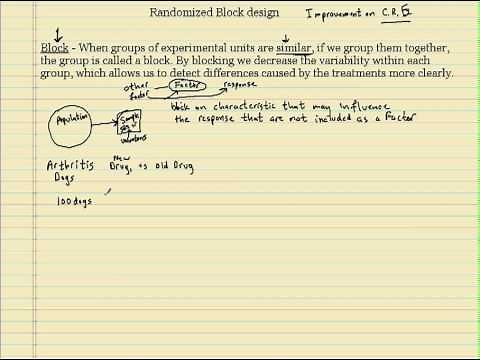 Randomized Block design
Improvement on C.R.E
Block - When groups of experimental units are similar, if we group them together,
the group is called a block. By blocking we decrease the variability within each
group, which allows us to detect differences caused by the treatments more clearly.
other
factor
Factor
response
block on characteristic that may influence
the response that are not included as a Factor
Population
Sample
Volunteers
Arthritis
Dogs
New
Drug, vs old Drug
100 dogs